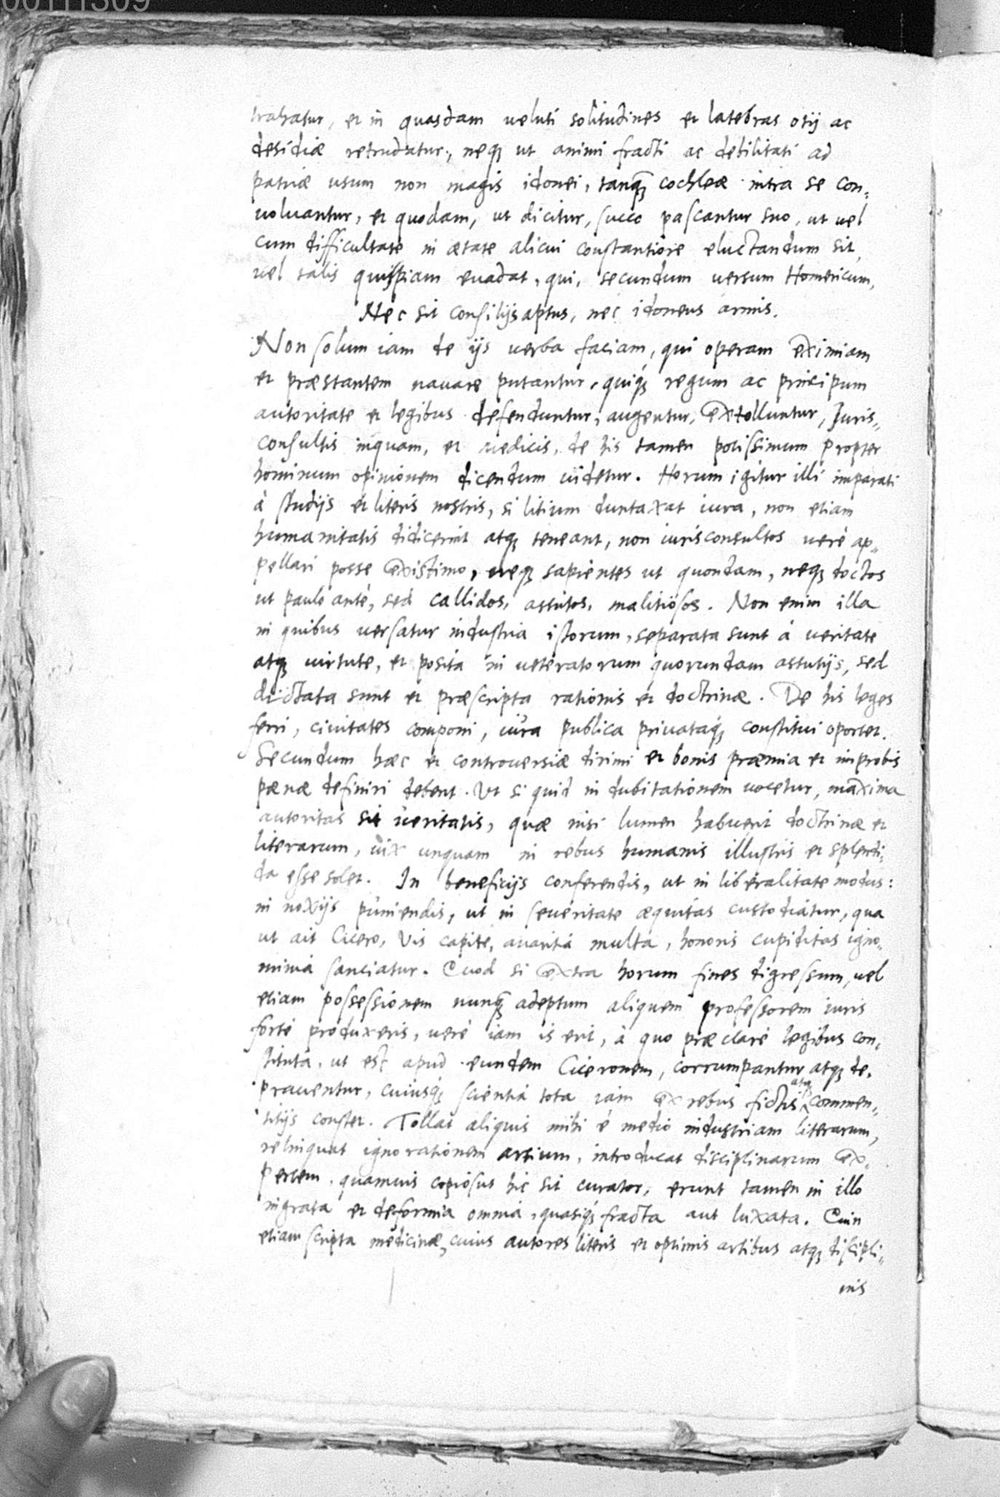 00111309
trahatur, et in quasdam veluti solitudines et latebras otij ac
desidiæ retrudatur, neq; ut animi fracti ac debilitati ad
patriæ usum non magis idonei, tanq̃ cochleæ intra se con-
uoluantur, et quodam, ut dicitur, succo pascantur suo, ut uel
cum difficultate in ætate alicui constantiore eluctandum sit,
uel talis quispiam euadat, qui, secundum uersum Homericum,
Nec sit consilijs aptus, nec idoneus armis.
Non solum iam de ijs uerba faciam, qui operam eximiam
et præstantem nauare putantur, quiq; regum ac principum
autoritate et legibus defenduntur, augentur, extolluntur, Juris-
consultis inquam, et medicis, de his tamen potissimum propter
hominum opinionem dicendum uidetur. Horum igitur illi imparati
à studijs et literis nostris, si litium duntaxat iura, non etiam
humanitatis didicerint atq; teneant, non iurisconsultos uerè ap-
pellari posse existimo, neq; sapientes ut quondam, neq; doctos
ut paulò antè, sed callidos, astutos, malitiosos. Non enim illa
in quibus uersatur industria istorum, separata sunt à ueritate
atq; uirtute, et posita in ueteratorum quorundam astutijs, sed
dictata sunt et præscripta rationis et doctrinæ. De his leges
ferri, ciuitates componi, iura publica priuataq; constitui oportet.
Secundum hæc et controuersiæ dirimi et bonis præmia et improbis
pænæ definiri debent. Ut si quid in dubitationem uocetur, maxima
autoritas sit ueritatis, quæ nisi lumen habuerit doctrinæ et
literarum, uix unquam in rebus humanis illustris et splendi-
da esse solet. In beneficijs conferendis, ut in liberalitate modus:
in noxijs puniendis, ut in seueritate æquitas custodiatur, qua
ut ait Cicero, Vis capite, auaritia multa, honoris cupiditas igno-
minia sanciatur. Quod si extra horum fines digressum, uel
etiam possessionem nunq̃ adeptum aliquem professorem iuris
fortè produxeris, uerè iam is erit, à quo præclarè legibus con-
stituta, ut est apud eundem Ciceronem, corrumpantur atq; de-
prauentur, cuiusq; scientia tota iam ex rebus fictis atq; commen-
titijs constet. Tollat aliquis mihi è medio industriam literarum,
relinquat ignorationem artium, introducat disciplinarum ex-
pertem. quamuis copiosus hic sit curator, erunt tamen in illo
ingrata et deformia omnia, quasiq; fracta aut luxata. Quin
etiam scripta medicinæ, cuius autores literis et optimis artibus atq; discipli-
nis